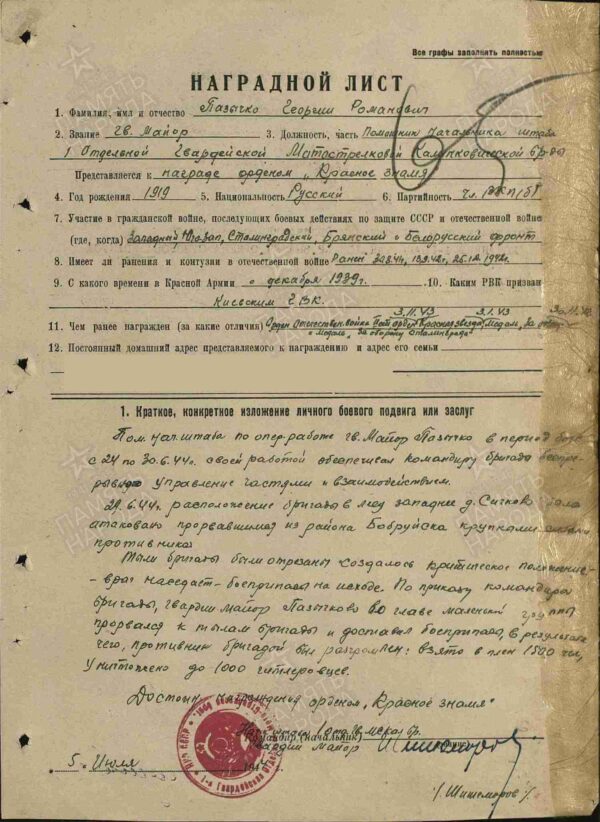 Все графы заполнять полностью
НАГРАДНОЙ ЛИСТ
1. Фамилия, имя и отчество Пазычко Георгий Романович
2. Звание гв. Майор 3. Должность, часть Помощник начальника штаба
1 Отдельной Гвардейской Мотострелковой Калинковичской бр-ды
Представляется к награде орденом „Красное знамя"
4. Год рождения 1919 5. Национальность Русский 6. Партийность чл. ВКП/б/
7. Участие в гражданской войне, последующих боевых действиях по защите СССР и отечественной войне
(где, когда) Западный, Юго-Зап, Сталинградский, Брянский и Белорусский фронт
8. Имеет ли ранения и контузии в отечественной войне Ранен
9. С какого времени в Красной Армии с декабря 1939г. 10. Каким РВК призван
Киевским ГВК.
3.11.43
11. Чем ранее награжден (за какие отличия) Орден Отечествен. войны орден Красная звезда, Медаль, За
и медаль „За оборону Сталинграда"
12. Постоянный домашний адрес представляемого к награждению и адрес его семьи
1. Краткое, конкретное изложение личного боевого подвига или заслуг
Пом. нач. штаба по опер. работе гв. Майор Пазычко в период боев
с 24 по 30.6.44г. своей работой обеспечивал командиру бригады беспре-
рывное управление частями и взаимодействием.
29.6.44г. расположение бригады в лесу западнее д. Сычково было
атаковано прорвавшимся из района Бобруйска крупными силами
противника
Тылы бригады были отрезаны создалось критическое положение
- враг наседает - боеприпасы на исходе. По приказу командира
бригады, гвардии майор Пазычко во главе маленькой группы
прорвался к тылам бригады и доставил боеприпасы, в результате
чего, противник бригадой был разгромлен: взято в плен 1500 чел,
Уничтожено до 1000 гитлеровцев.
Достоин награждения орденом „Красное знамя"
Командир (начальник)
Гвардии Майор
5. Июля 194
/Шишмарев/.